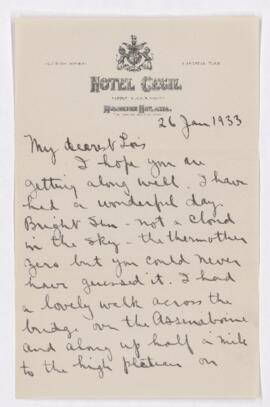 HOTEL CECIL
26 Jan 1933
My dearest Lois
I hope you are
getting along well. I have
had a wonderful day.
Bright Sun - not a cloud
in the sky - the thermometer
zero but you could never
have guessed it. I had
a lovely walk across the
bridge over the Assiniboine
and along up half a mile
to the high plateau on